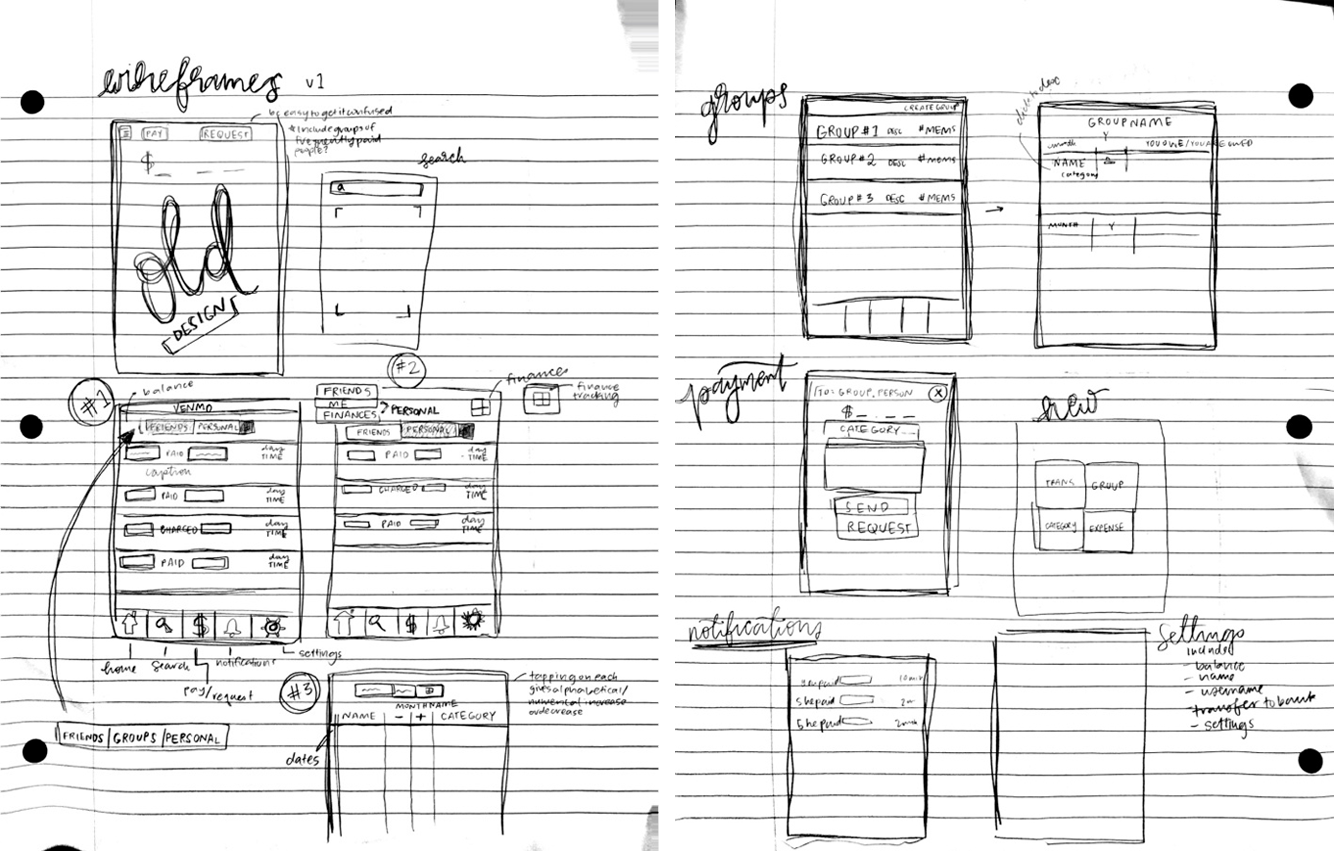 wireframes v1
be easy to get it confused
* include groups of
frequently paid
people?
PAY REQUEST
$
old
DESIGN
search
#1
balance
VENMO
FRIENDS PERSONAL
PAID day
TIME
caption
PAID day
TIME
CHARGED day
TIME
PAID day
TIME
$
home search pay/request notifications settings
FRIENDS GROUPS PERSONAL
#2
FRIENDS
ME
FINANCES ? PERSONAL
finances
finance
tracking
FRIENDS PERSONAL
PAID day
TIME
CHARGED day
TIME
PAID day
TIME
$
#3
MONTHNAME
NAME - + CATEGORY
dates
tapping on each
gives alphabetical/
numerical increase
or decrease
groups
CREATE GROUP
GROUP #1 DESC #MEMS
GROUP #2 DESC #MEMS
GROUP #3 DESC #MEMS
click to desc
GROUPNAME
Y YOU OWE/YOU ARE OWED
NAME
category
Y
payment
TO: GROUP, PERSON X
$
CATEGORY
SEND
REQUEST
new
TRANS GROUP
CATEGORY EXPENSE
notifications
paid
she paid
she paid
settings
include
- balance
- name
- username
- transfer to bank
- settings